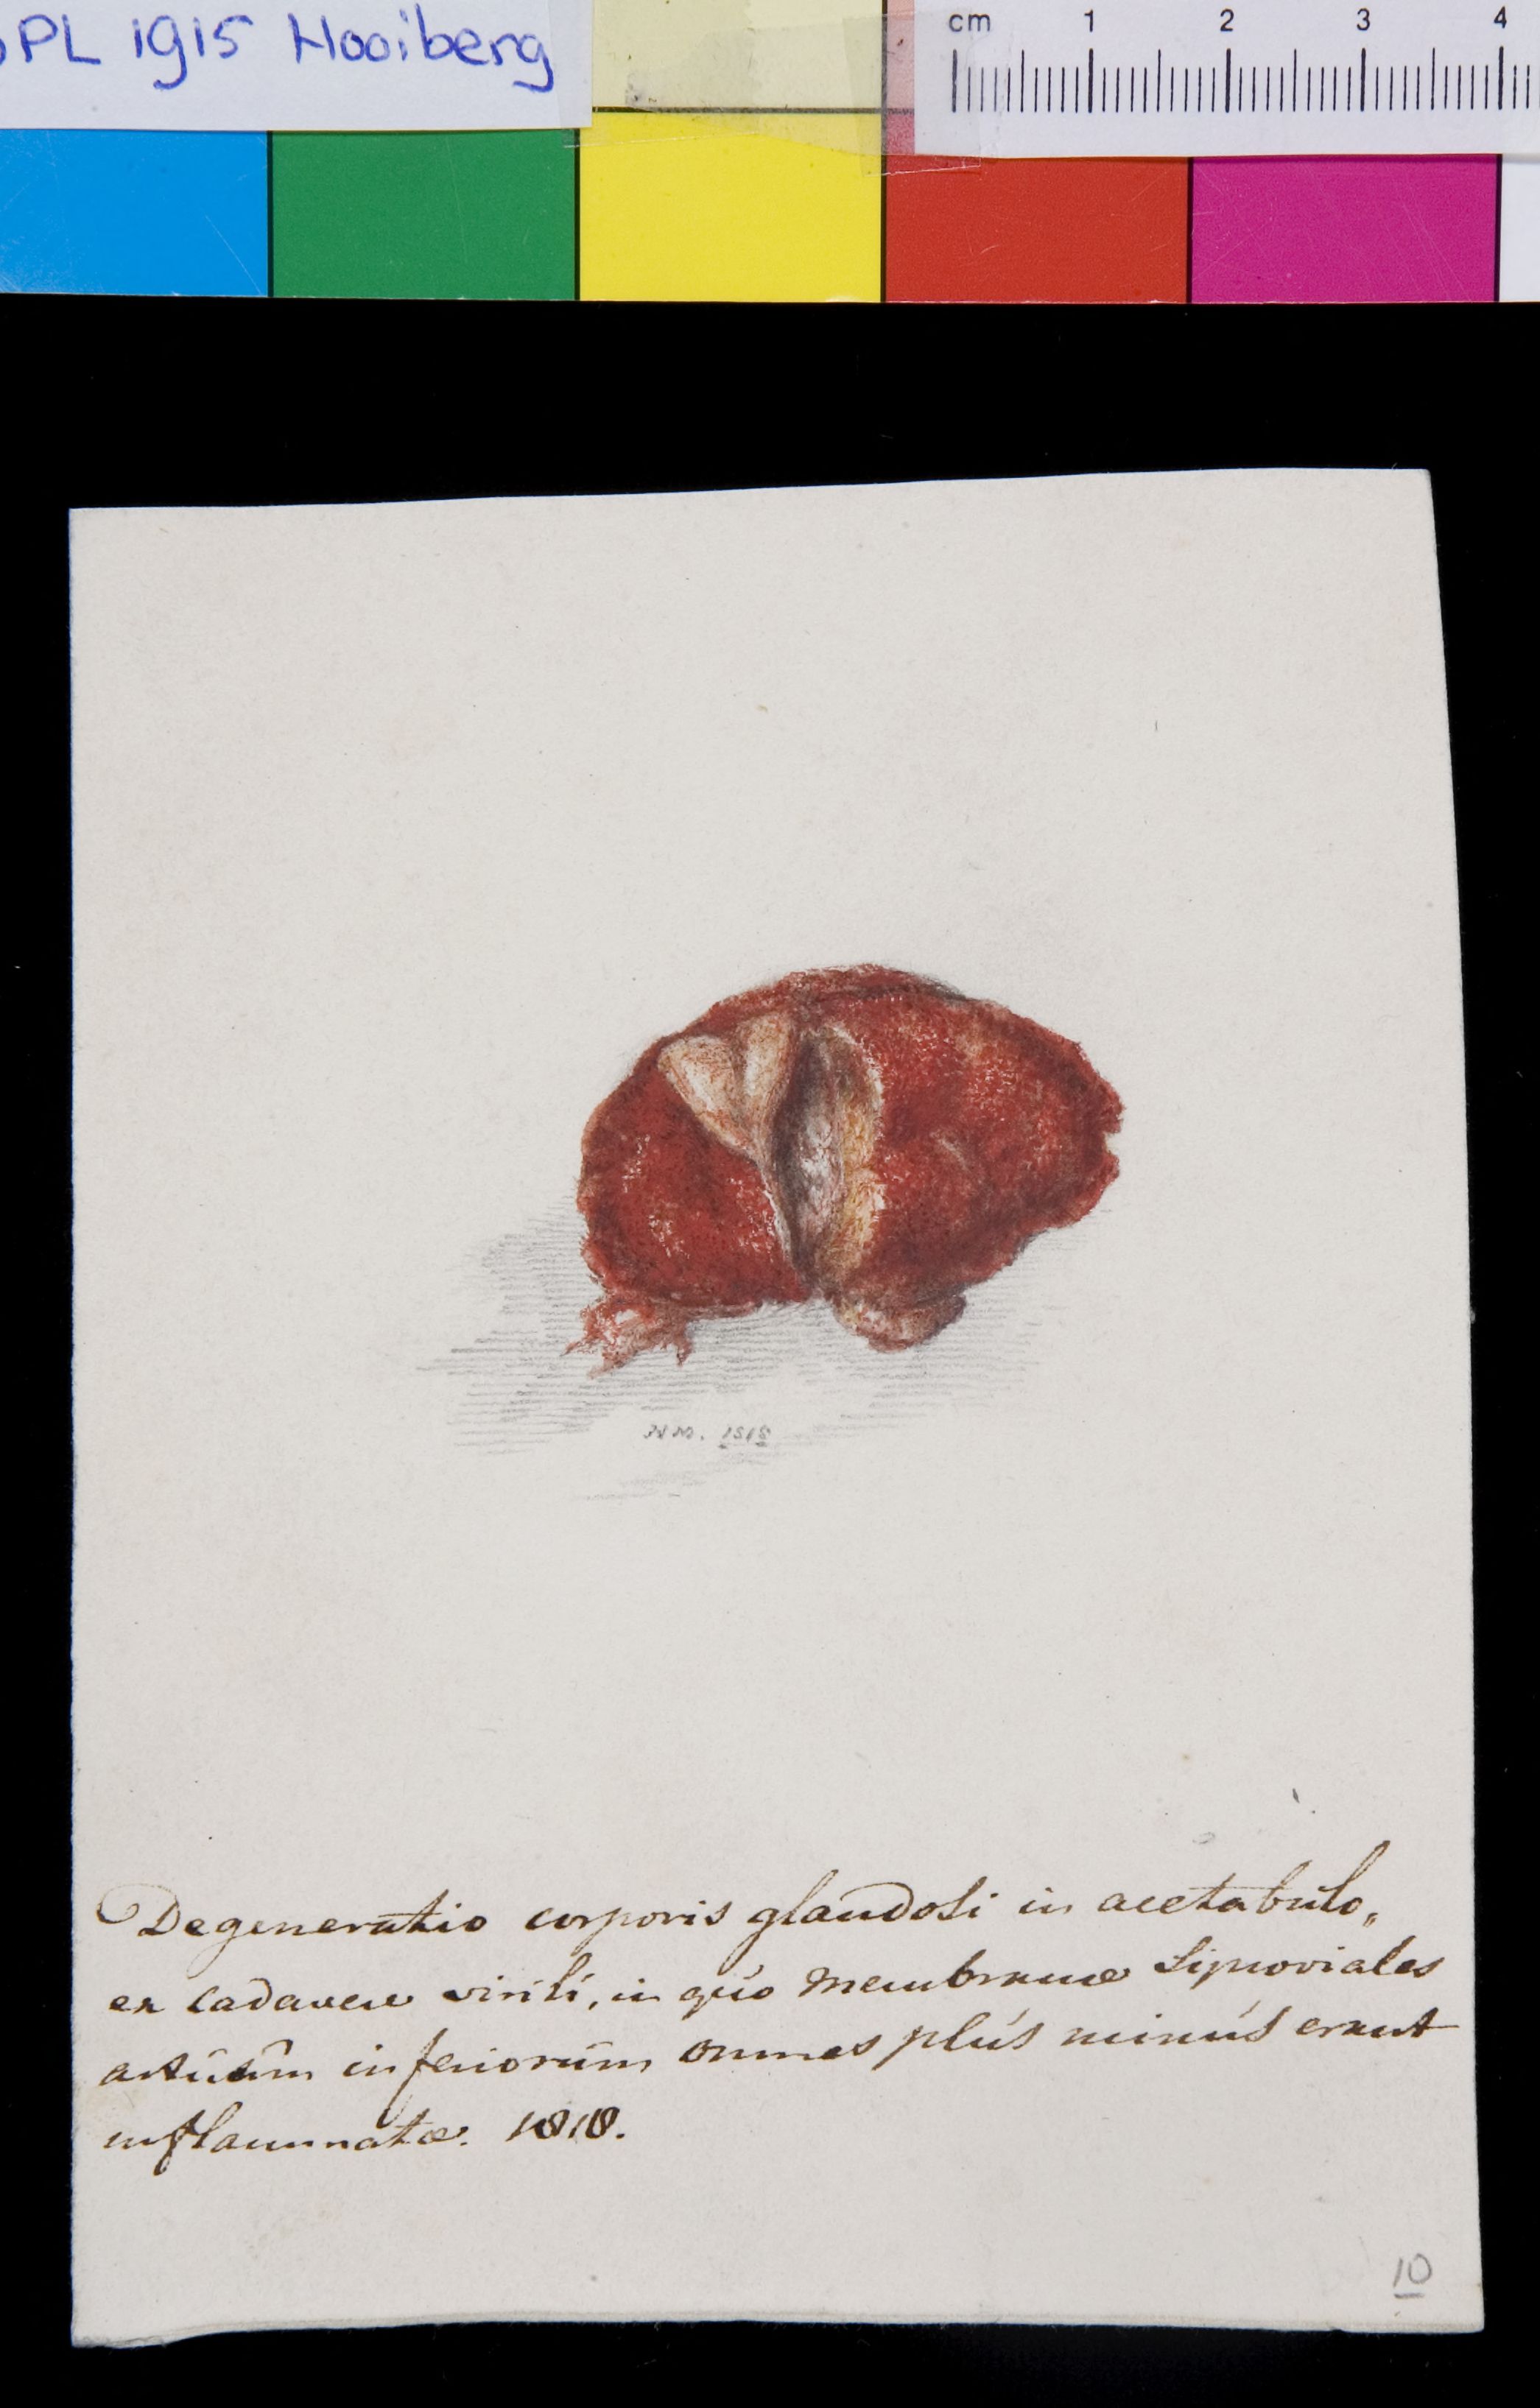 PL 1915 Hooiberg
cm 1 2 3 4
1818
Degeneratio corporis glandosi in acetabulo,
ex cadavere virili, in quo membranae Sipnoviales
artuum inferiorum omnes plus minus erant
inflammatae. 1818.
10